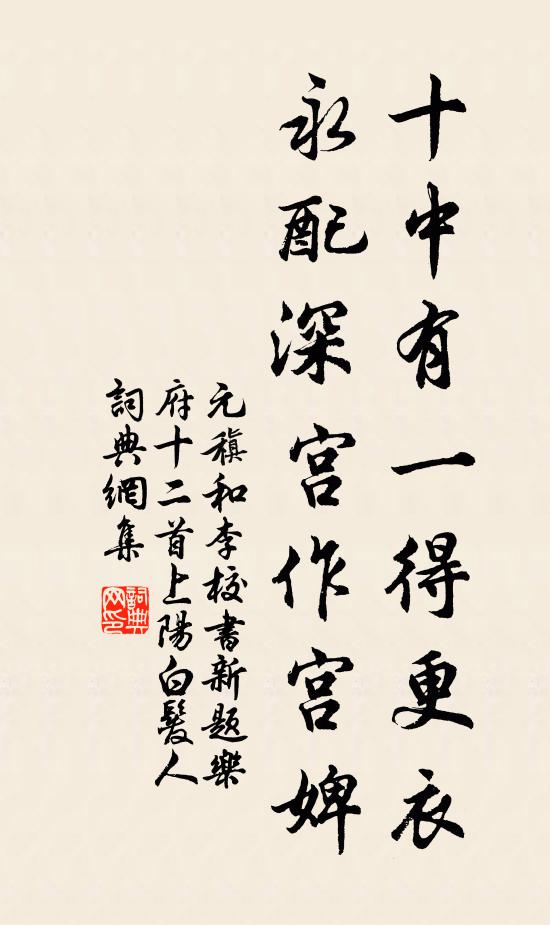 十中有一得更衣
永配深宮作宮婢
元稹和李校書新題樂
府十二首上陽白髮人
詞典網集
詞典
网印